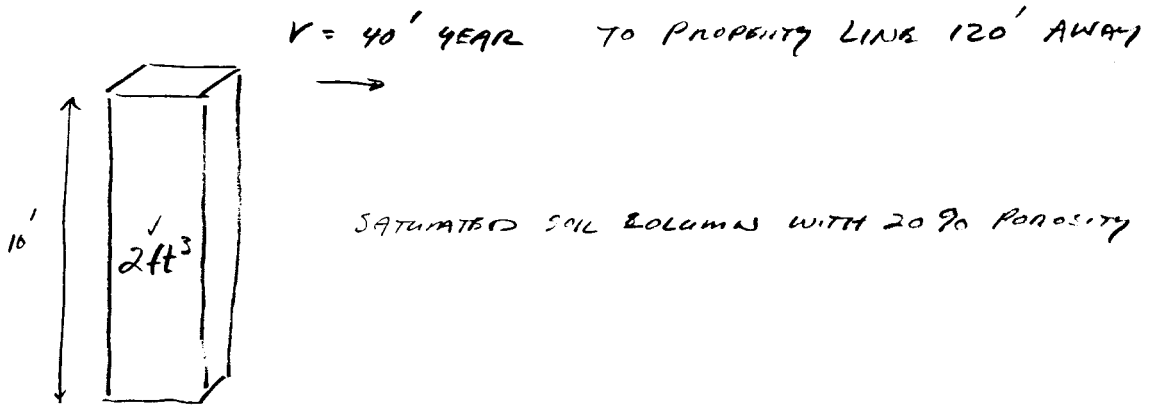 V = 40' YEAR TO PROPERTY LINE 120' AWAY
10'
2ft³
SATURATED SOIL COLUMN WITH 20% POROSITY